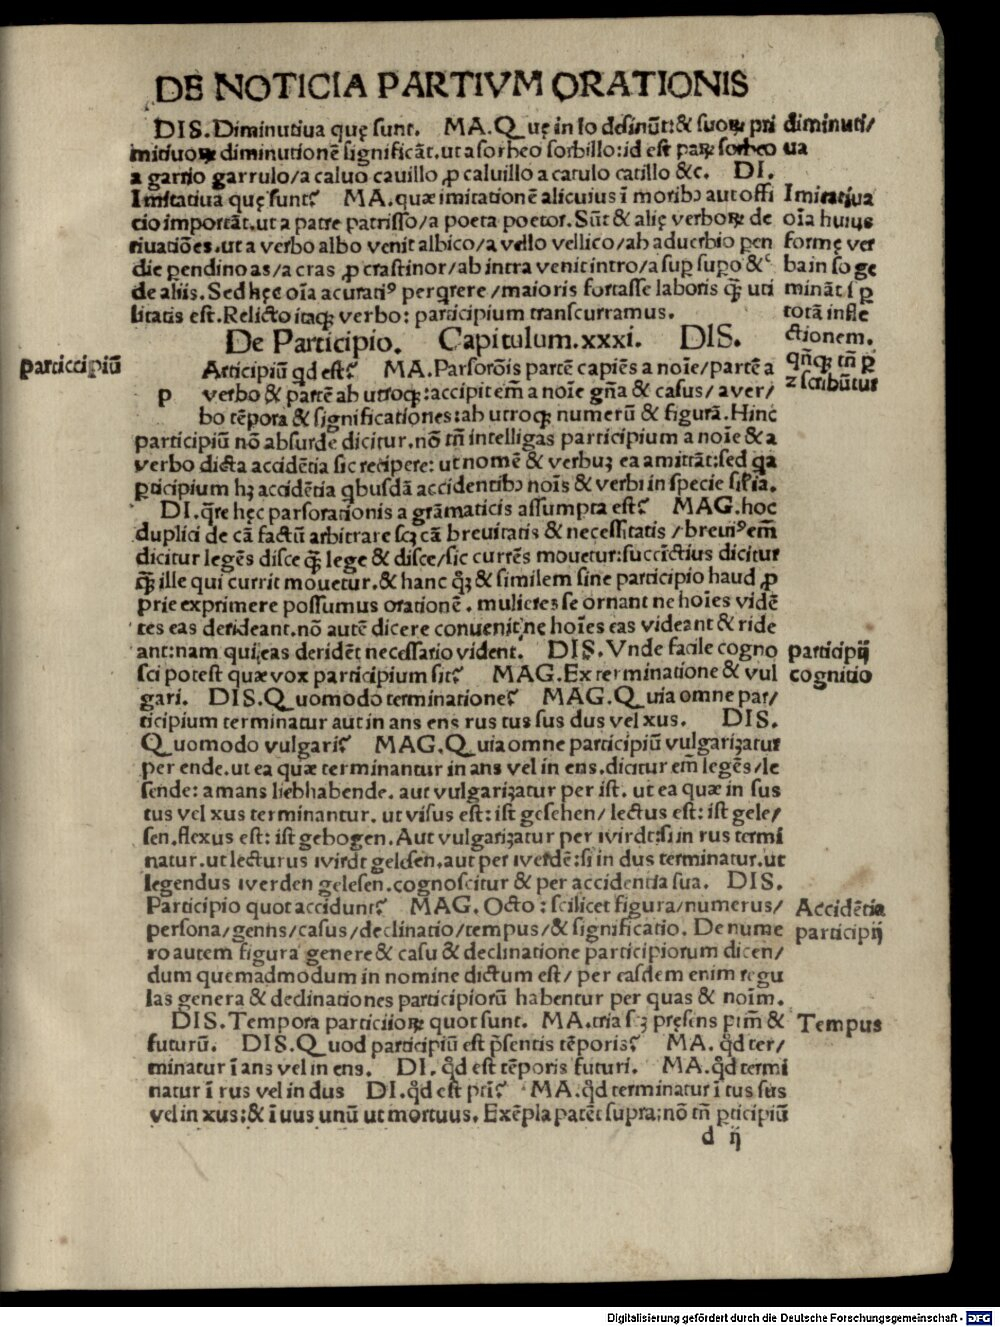 DE NOTICIA PARTIVM ORATIONIS
DIS. Diminutiua quę sunt. MA. Quę in lo desinūt: & suoꝝ pri
mitiuoꝝ diminutionē significāt. ut a sorbeo sorbillo: id est parꝝ sorbeo
a garrio garrulo/ a caluo cauillo ꝓ caluillo a catulo catillo &c. DI.
Imitatiua quę sunt? MA. quæ imitationē alicuius ī moribꝫ aut offi
cio importāt. ut a patre patrisso/ a poeta poetor. Sūt & alię verboꝝ de
riuatiōes. ut a verbo albo venit albico/ a vello vellico/ ab aduerbio pen
die pendino as/ a cras ꝓ crastinor/ ab intra venit intro/ a suꝑ supo &c
de aliis. Sed hęc oīa acuratiꝰ perqrere/ maioris fortasse laboris q̄ꝫ uti
litatis est. Relicto itaqꝫ verbo: participium transcurramus.
De Participio. Capitulum. xxxi. DIS.
Articipiū qd est? MA. Pars orōis partē capiēs a noīe/ partē a
p verbo & partē ab utroqꝫ: accipit em̄ a noīe gn̄a & casus/ a ver/
bo tēpora & significationes: ab utroqꝫ numerū & figurā. Hinc
participiū nō absurde dicitur. nō tn̄ intelligas participium a noīe & a
verbo dicta accidētia sic recipere: ut nomē & verbuꝫ ea amittāt: sed qa
ꝑticipium hꝫ accidētia qbusdā accidentibꝫ noīs & verbi in specie sil̄ia.
DI. q̄re hęc pars orationis a grāmaticis assumpta est? MAG. hoc
duplici de cā factū arbitrare scꝫ cā breuitatis & necessitatis/ breuiꝰ em̄
dicitur legēs disce q̄ꝫ lege & disce/ sic currēs mouetur: succīctius dicitur
q̄ꝫ ille qui currit mouetur. & hanc qͥꝫ & similem sine participio haud ꝓ
prie exprimere possumus orationē. mulieres se ornant ne hoīes vidē
tes eas derideant. nō autē dicere conuenit, ne hoīes eas videant & ride
ant: nam qui eas deridēt necessario vident. DIS. Vnde facile cogno
sci potest quæ vox participium sit? MAG. Ex terminatione & vul
gari. DIS. Quomodo terminatione? MAG. Quia omne par/
ticipium terminatur aut in ans ens rus tus sus dus vel xus. DIS.
Quomodo vulgari? MAG. Quia omne participiū vulgariꝫatur
per ende. ut ea quæ terminantur in ans vel in ens. dicitur em̄ legēs/ le
sende: amans liebhabende. aut vulgariꝫatur per ist. ut ea quæ in sus
tus vel xus terminantur. ut visus est: ist gesehen/ lectus est: ist gele/
sen. flexus est: ist gebogen. Aut vulgariꝫatur per wirdt: si in rus termi
natur. ut lecturus wirdt gelesen. aut per werdē: si in dus terminatur. ut
legendus werden gelesen. cognoscitur & per accidentia sua. DIS.
Participio quot accidunt? MAG. Octo: scilicet figura/ numerus/
persona/ genus/ casus/ declinatio/ tempus/ & significatio. De nume
ro autem figura genere & casu & declinatione participiorum dicen/
dum quemadmodum in nomine dictum est/ per easdem enim regu
las genera & declinationes participiorū habentur per quas & noīm.
DIS. Tempora particiioꝝ quot sunt. MA. tria sꝫ pręsens prim̄ &
futurū. DIS. Quod participiū est p̄sentis tēporis? MA. qͥd ter/
minatur ī ans vel in ens. DI. qͥd est tēporis futuri. MA. qͥd termi
natur ī rus vel in dus DI. qͥd est pri? MA. qͥd terminatur ī tus sus
vel in xus: & ī uus unū ut mortuus. Exēpla patēt supra: nō tn̄ ꝑticipiū
d ij
diminuti/
ua
Imitatiua
oīa huius
formę ver
ba in so ge
mināt s ꝑ
totā infle
ctionem.
qn̄qꝫ tn̄ ꝑ
z scribūtur
particcipiū
participij
cognitio
Accidētia
participij
Tempus
Digitalisierung gefördert durch die Deutsche Forschungsgemeinschaft - DFG